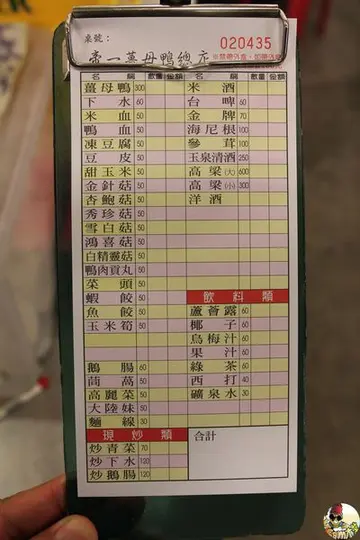 桌號：
020435
帝一薑母鴨總店
名稱 數量 金額 名稱 數量 金額
薑母鴨 300 米酒
下水 60 台啤 60
米血 50 金牌 70
鴨血 50 海尼根 100
凍豆腐 50 參茸 100
豆皮 50 玉泉清酒 250
甜玉米 50 高粱(大) 600
金針菇 50 高粱(小) 300
杏鮑菇 50 洋酒
秀珍菇 50
雪白菇 50
鴻喜菇 50
白精靈菇 50
鴨肉貢丸 50
菜頭 50
蝦餃 60 飲料類
魚餃 50 蘆薈露 60
玉米筍 50 椰子 60
烏梅汁 60
果汁 60
鵝腸 60 綠茶 60
茼萵 50 西打 40
高麗菜 50 礦泉水 30
大陸妹 50
麵線 30
現炒類 合計
炒青菜 70
炒下水 120
炒鵝腸 120